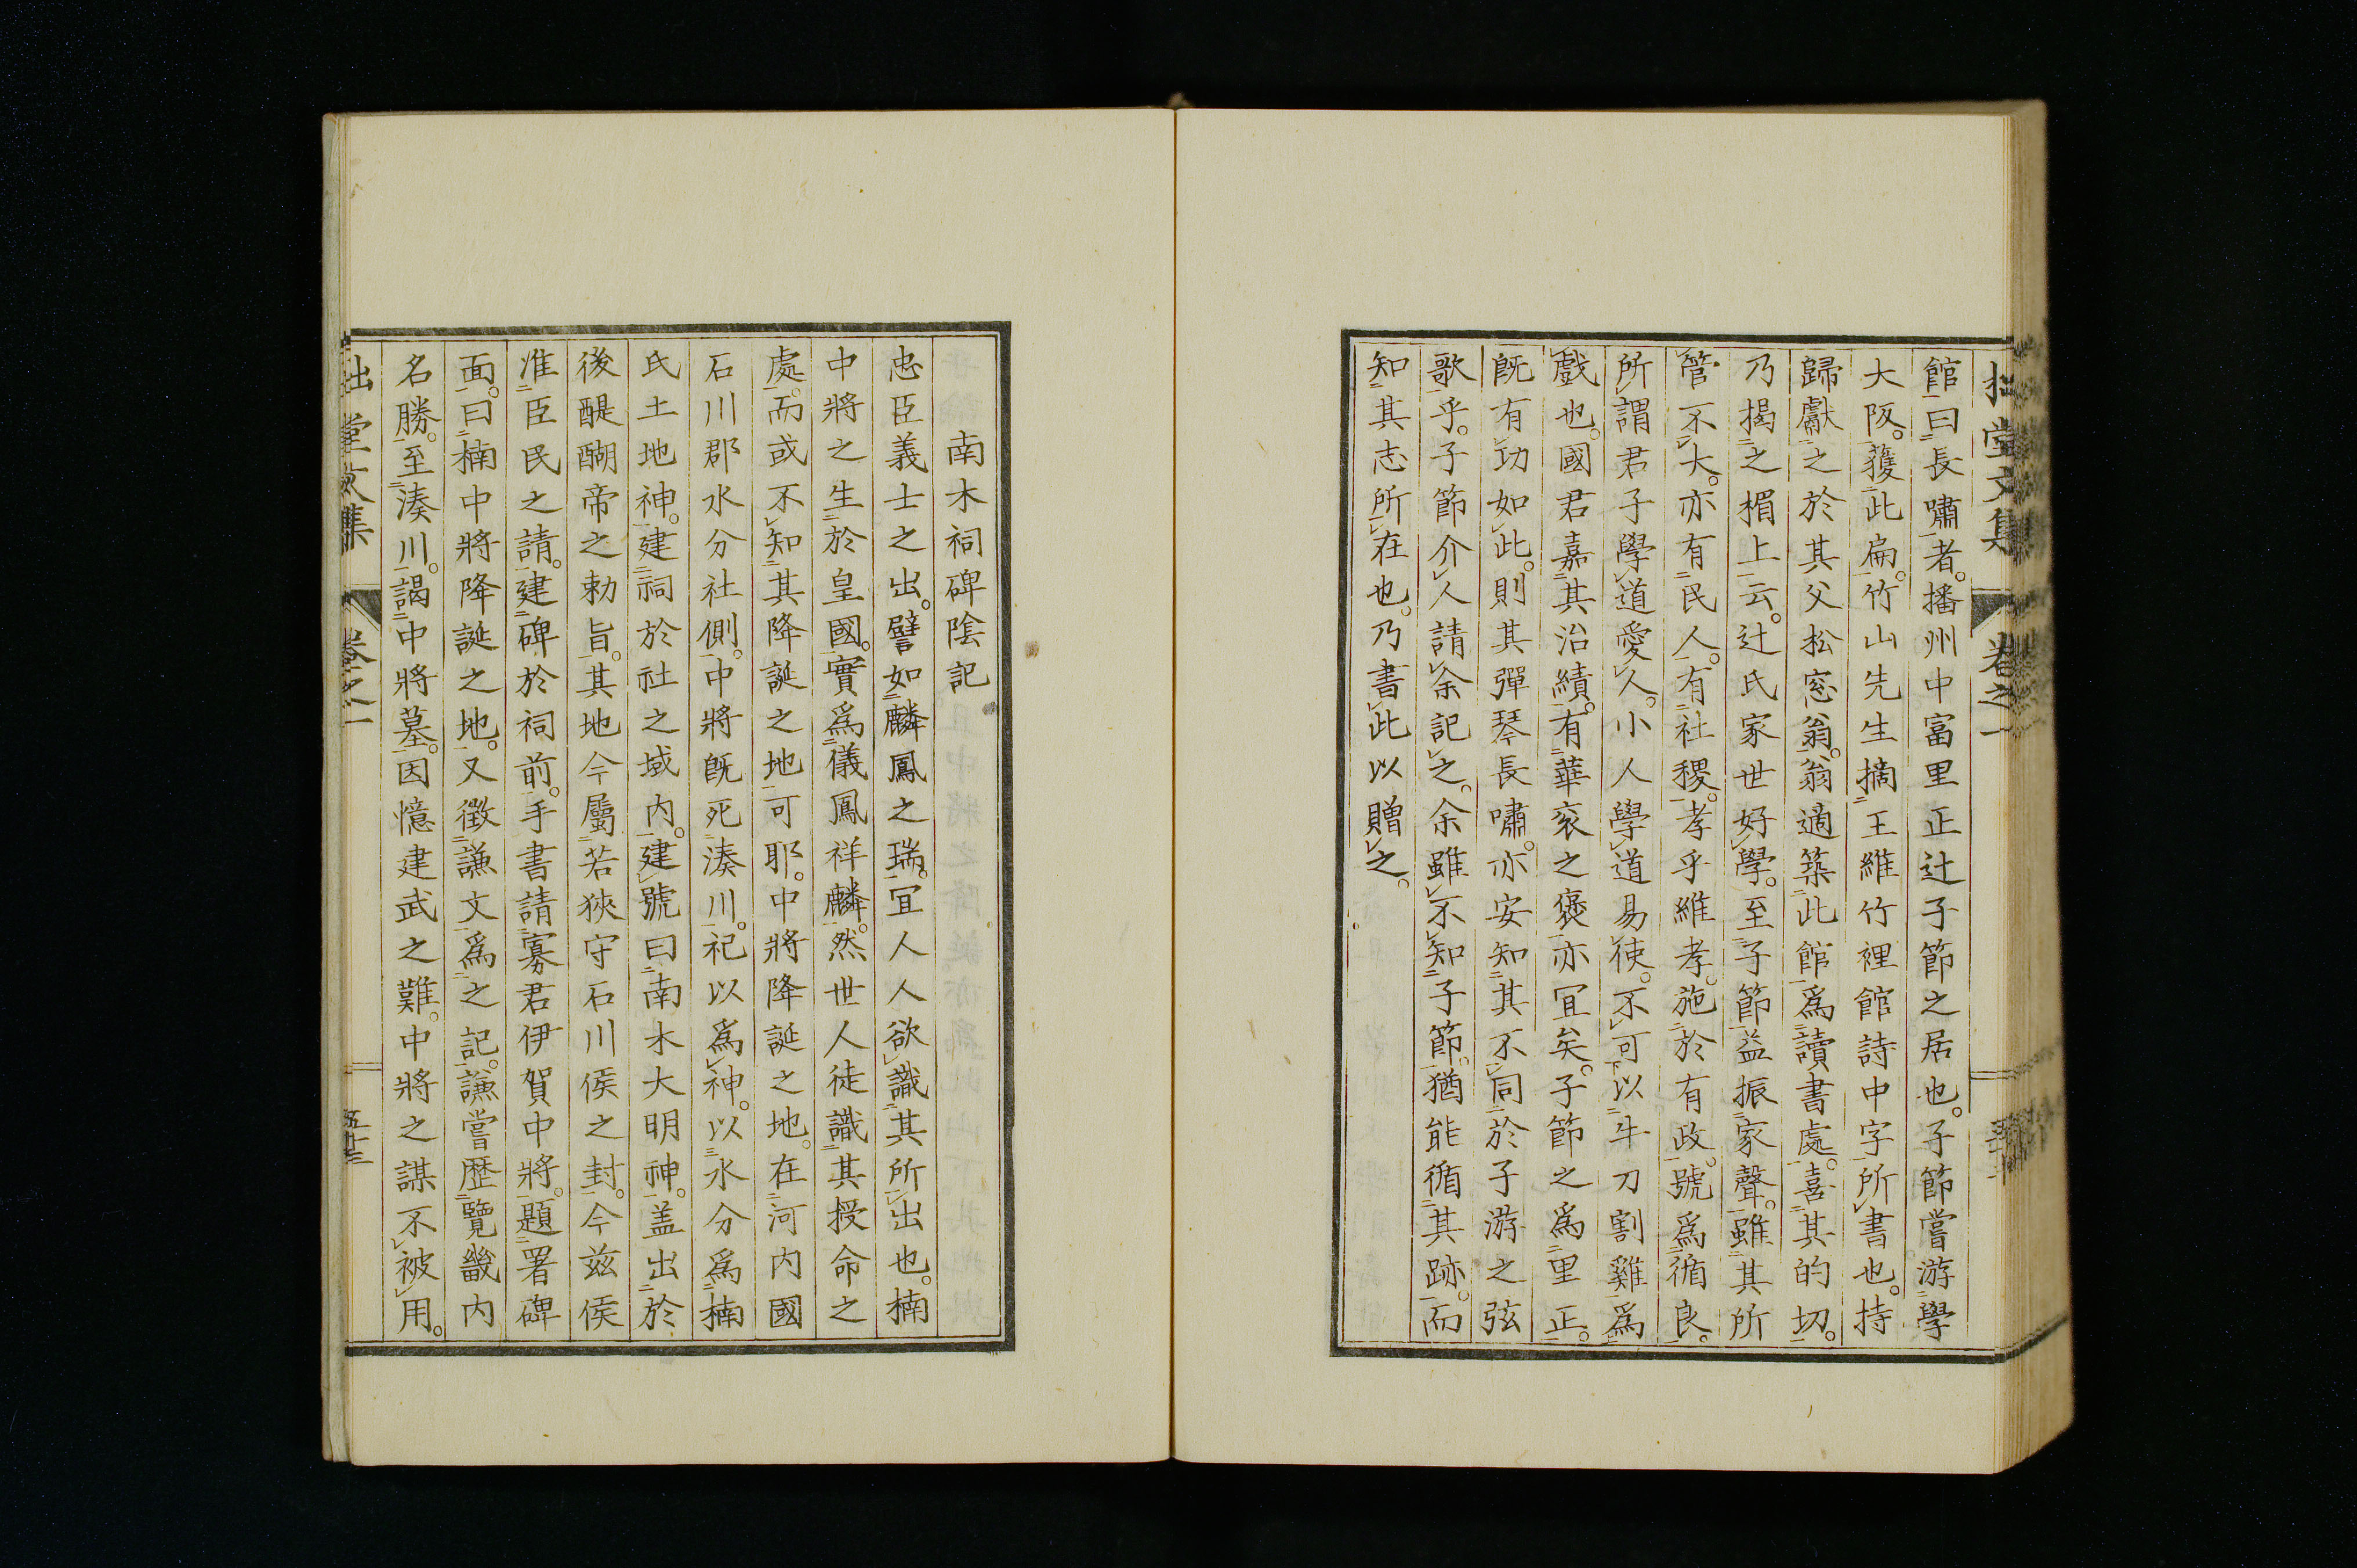 拙堂文集
卷之一
館曰長嘯者。播州中富里正辻子節之居也。子節嘗游學
大阪。獲此扁。竹山先生摘王維竹裡館詩中字所書也。持
歸獻之於其父松窓翁。翁適築此館爲讀書處。喜其的切。
乃揭之楣上云。辻氏家世好學。至子節益振家聲。雖其所
管不大。亦有民人。有社稷。孝乎維孝。施於有政。號爲循良。
所謂君子學道愛人。小人學道易使。不可以牛刀割雞爲
戲也。國君嘉其治績。有華衮之襃亦宜矣。子節之爲里正。
既有功如此。則其彈琴長嘯。亦安知其不同於子游之弦
歌乎。子節介人請余記之。余雖不知子節。猶能循其跡。而
知其志所在也。乃書此以贈之。
南木祠碑陰記
忠臣義士之出。譬如麟鳳之瑞。宜人人欲識其所出也。楠
中將之生於皇國。實爲儀鳳祥麟。然世人徒識其授命之
處。而或不知其降誕之地可耶。中將降誕之地。在河內國
石川郡水分社側。中將既死湊川。祀以爲神。以水分爲楠
氏土地神。建祠於社之域內。建號曰南木大明神。盖出於
後醍醐帝之勅旨。其地今屬若狹守石川侯之封。今玆侯
准臣民之請。建碑於祠前。手書請寡君伊賀中將。題署碑
面。曰楠中將降誕之地。又徵謙文爲之記。謙嘗歷覽畿內
名勝。至湊川。謁中將墓。因憶建武之難。中將之謀不被用。
拙堂文集
卷之一